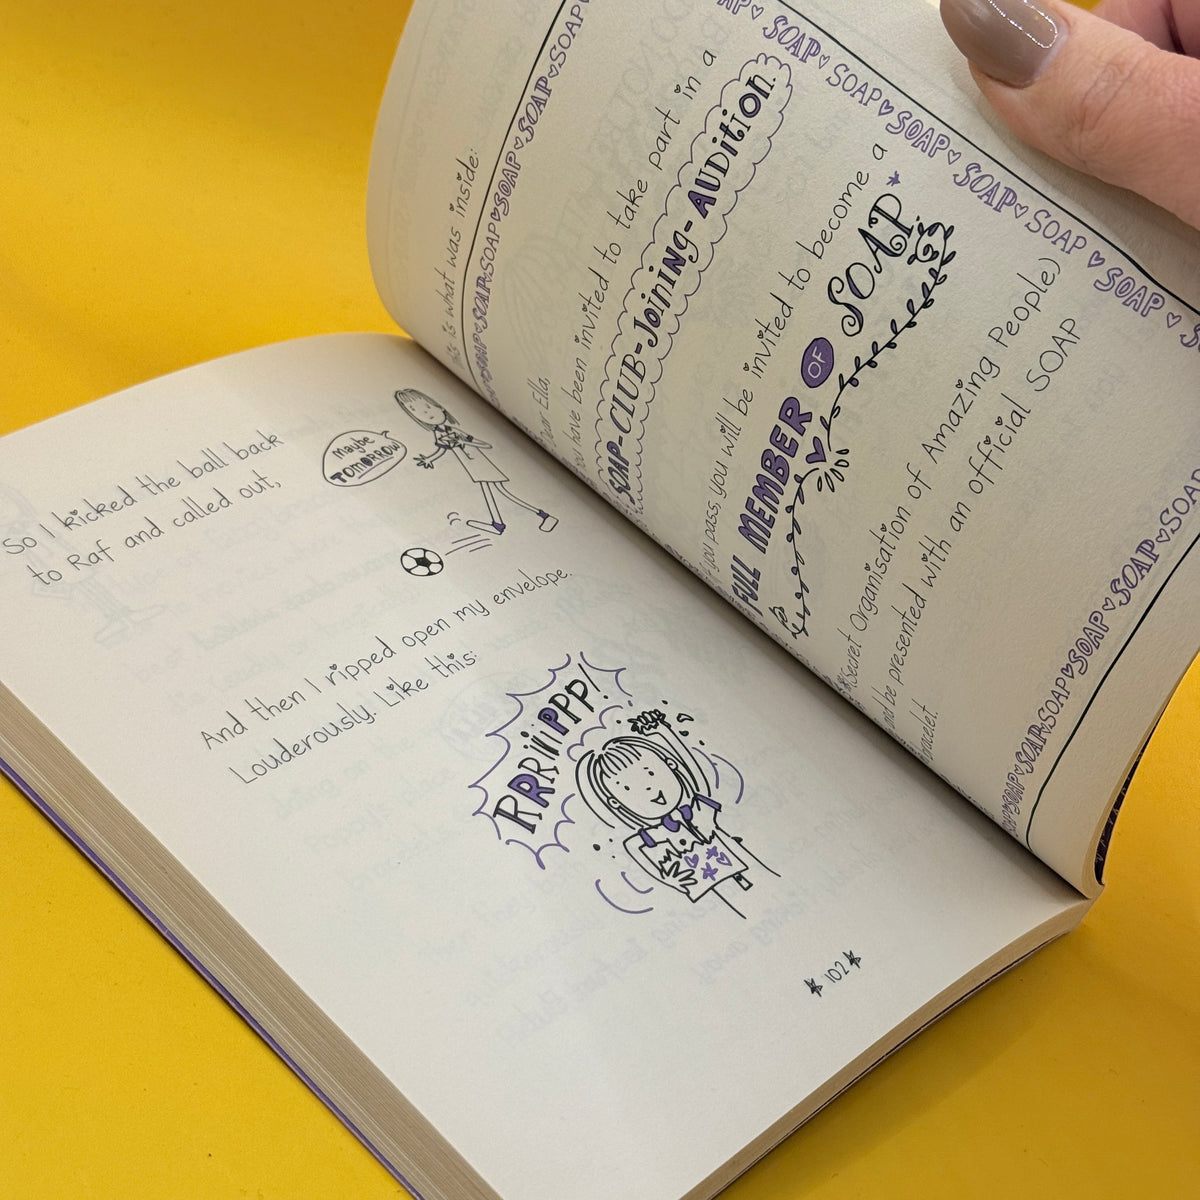 So I kicked the ball back
to Raf and called out,
Maybe
TOMORROW
And then I ripped open my envelope.
Louderously. Like this:
RRRriiiPPP!
102
This is what was inside:
SOAP SOAP SOAP SOAP SOAP SOAP SOAP
SOAP SOAP SOAP SOAP SOAP SOAP SOAP
Dear Ella,
You have been invited to take part in a
SOAP-CLUB-Joining-AUDition.
If you pass, you will be invited to become a
FULL MEMBER OF SOAP
(Secret Organisation of Amazing People)
and be presented with an official SOAP
bracelet.
SOAP SOAP SOAP SOAP SOAP SOAP SOAP